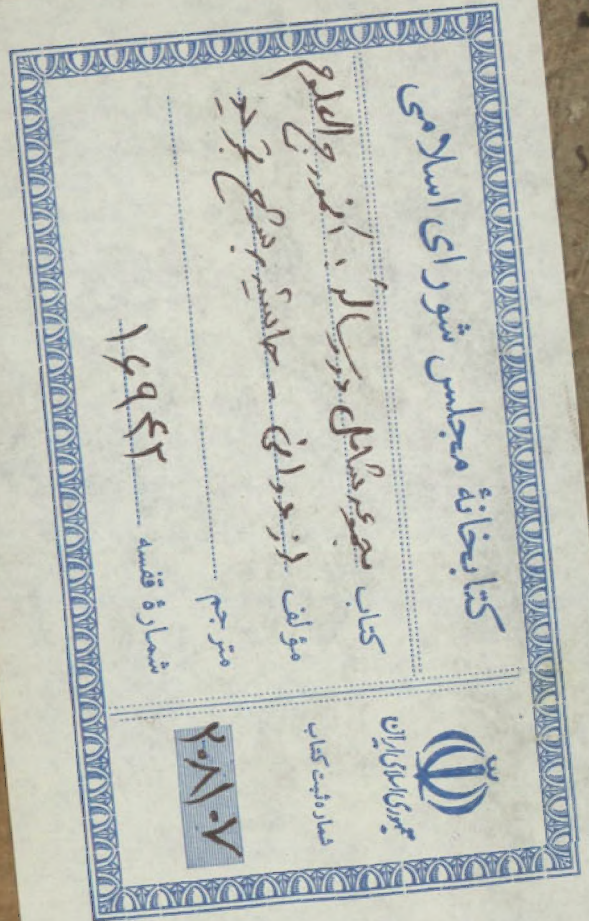 کتابخانهٔ مجلس شورای اسلامی
کتاب مجموعه شامل دو رساله، انموذج العلوم
مؤلف از دوانی - حاشیه بر شرح تجرید
مترجم
شمارهٔ قفسه ۱۶۹۴۲
جمهوری اسلامی ایران
شماره ثبت کتاب
۲۰۸۱۰۷